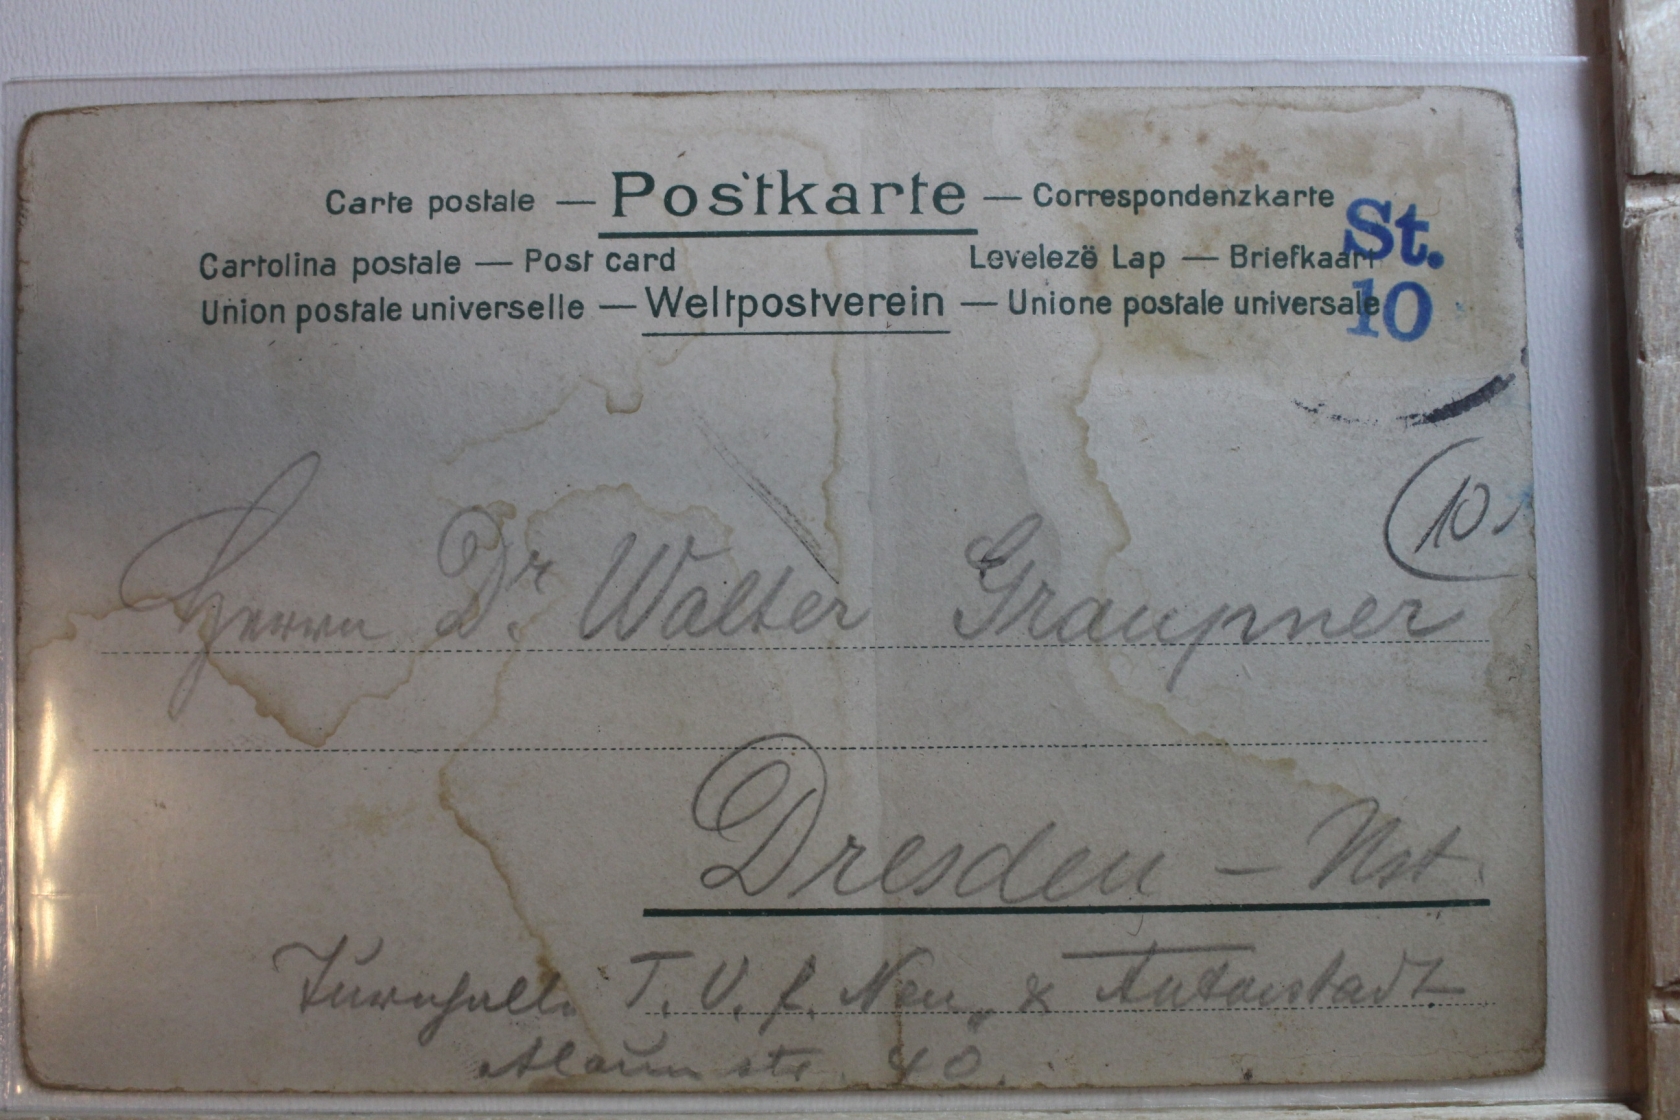 Carte postale — Postkarte — Correspondenzkarte
Cartolina postale — Post card Levelezë Lap — Briefkaart
Union postale universelle — Weltpostverein — Unione postale universale
St.
10
10.
Herrn Dr. Walter Graupner
Dresden – Nst
Turnhalle T. V. f. Neu- & Antonstadt
Alaunstr. 40.